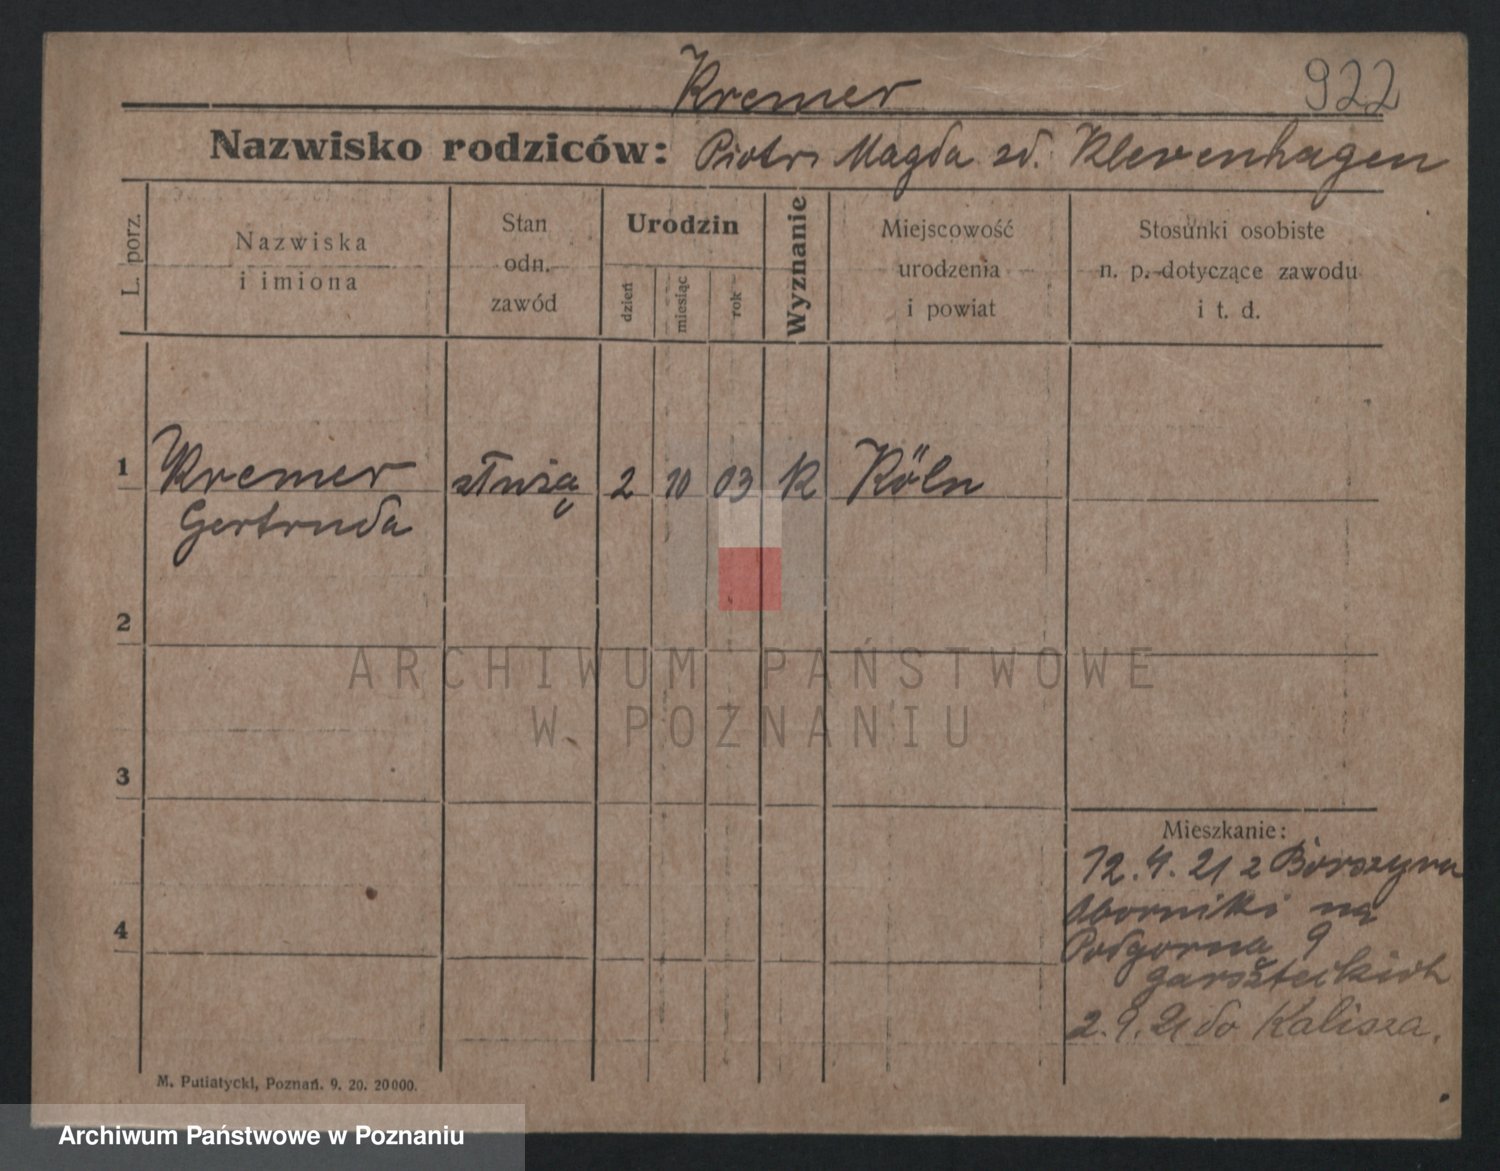 922
Kremer
Nazwisko rodziców: Piotr Magda zd. Klevenhagen
L. porz.
Nazwiska
i imiona
Stan
odn.
zawód
Urodzin
dzień
miesiąc
rok
Wyznanie
Miejscowość
urodzenia
i powiat
Stosunki osobiste
n. p. dotyczące zawodu
i t. d.
1 Kremer służą 2 10 03 K Köln
Gertruda
2
3
4
Mieszkanie:
12.4.21 z
Oborniki na
Podgorna 9
2.9.21 do Kalisza.
M. Putiatycki, Poznań. 9. 20. 20000.
ARCHIWUM PAŃSTWOWE
W POZNANIU
Archiwum Państwowe w Poznaniu